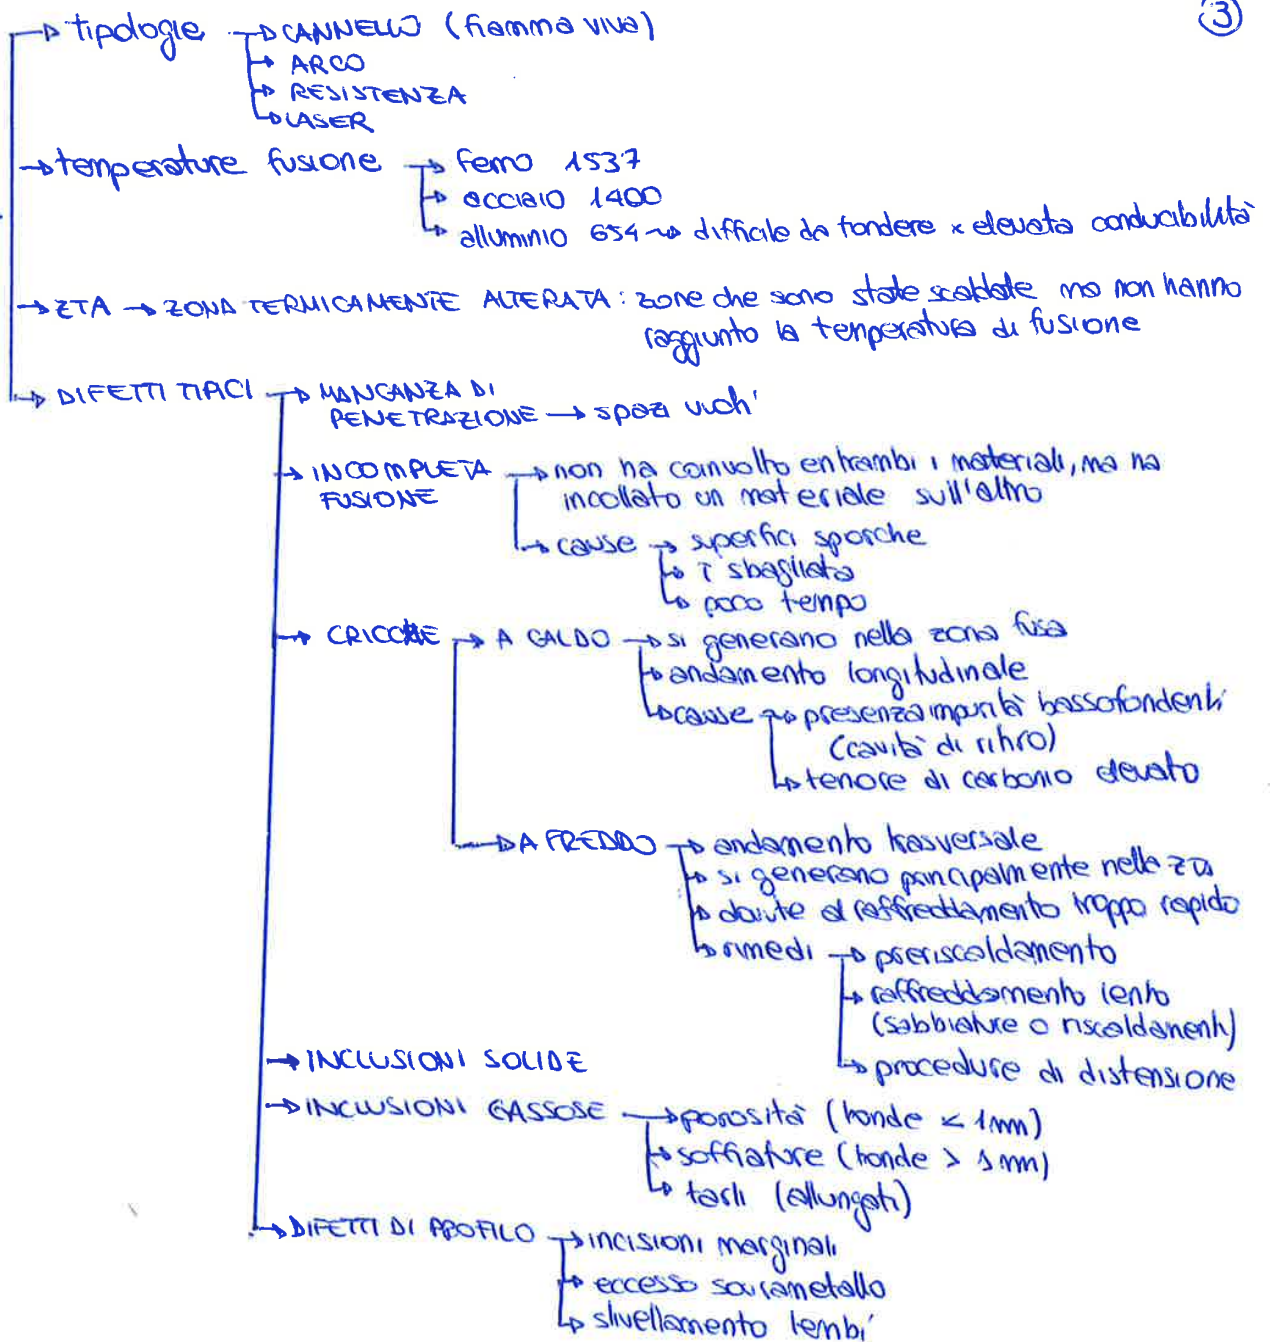 3
tipologie → CANNELLO (fiamma viva)
→ ARCO
→ RESISTENZA
→ LASER
→ temperature fusione → ferro 1537
→ acciaio 1400
→ alluminio 654 → difficile da fondere x elevata conducibilità
→ ZTA → ZONA TERMICAMENTE ALTERATA: zone che sono state scaldate ma non hanno
raggiunto la temperatura di fusione
→ DIFETTI TIPICI → MANCANZA DI
PENETRAZIONE → spazi vuoti
→ INCOMPLETA → non ha coinvolto entrambi i materiali, ma ha
FUSIONE incollato un materiale sull'altro
→ cause → superfici sporche
→ T sbagliata
→ poco tempo
→ CRICCHE → A CALDO → si generano nella zona fusa
→ andamento longitudinale
→ cause → presenza impurità bassofondenti
(cavità di ritiro)
→ tenore di carbonio elevato
→ A FREDDO → andamento trasversale
→ si generano principalmente nella zta
→ dovute al raffreddamento troppo rapido
→ rimedi → preriscaldamento
→ raffreddamento lento
(sabbiature o riscaldamenti)
→ procedure di distensione
→ INCLUSIONI SOLIDE
→ INCLUSIONI GASSOSE → porosità (tonde < 1mm)
→ soffiature (tonde > 1 mm)
→ tarli (allungati)
→ DIFETTI DI PROFILO → incisioni marginali
→ eccesso sovrametallo
→ slivellamento lembi